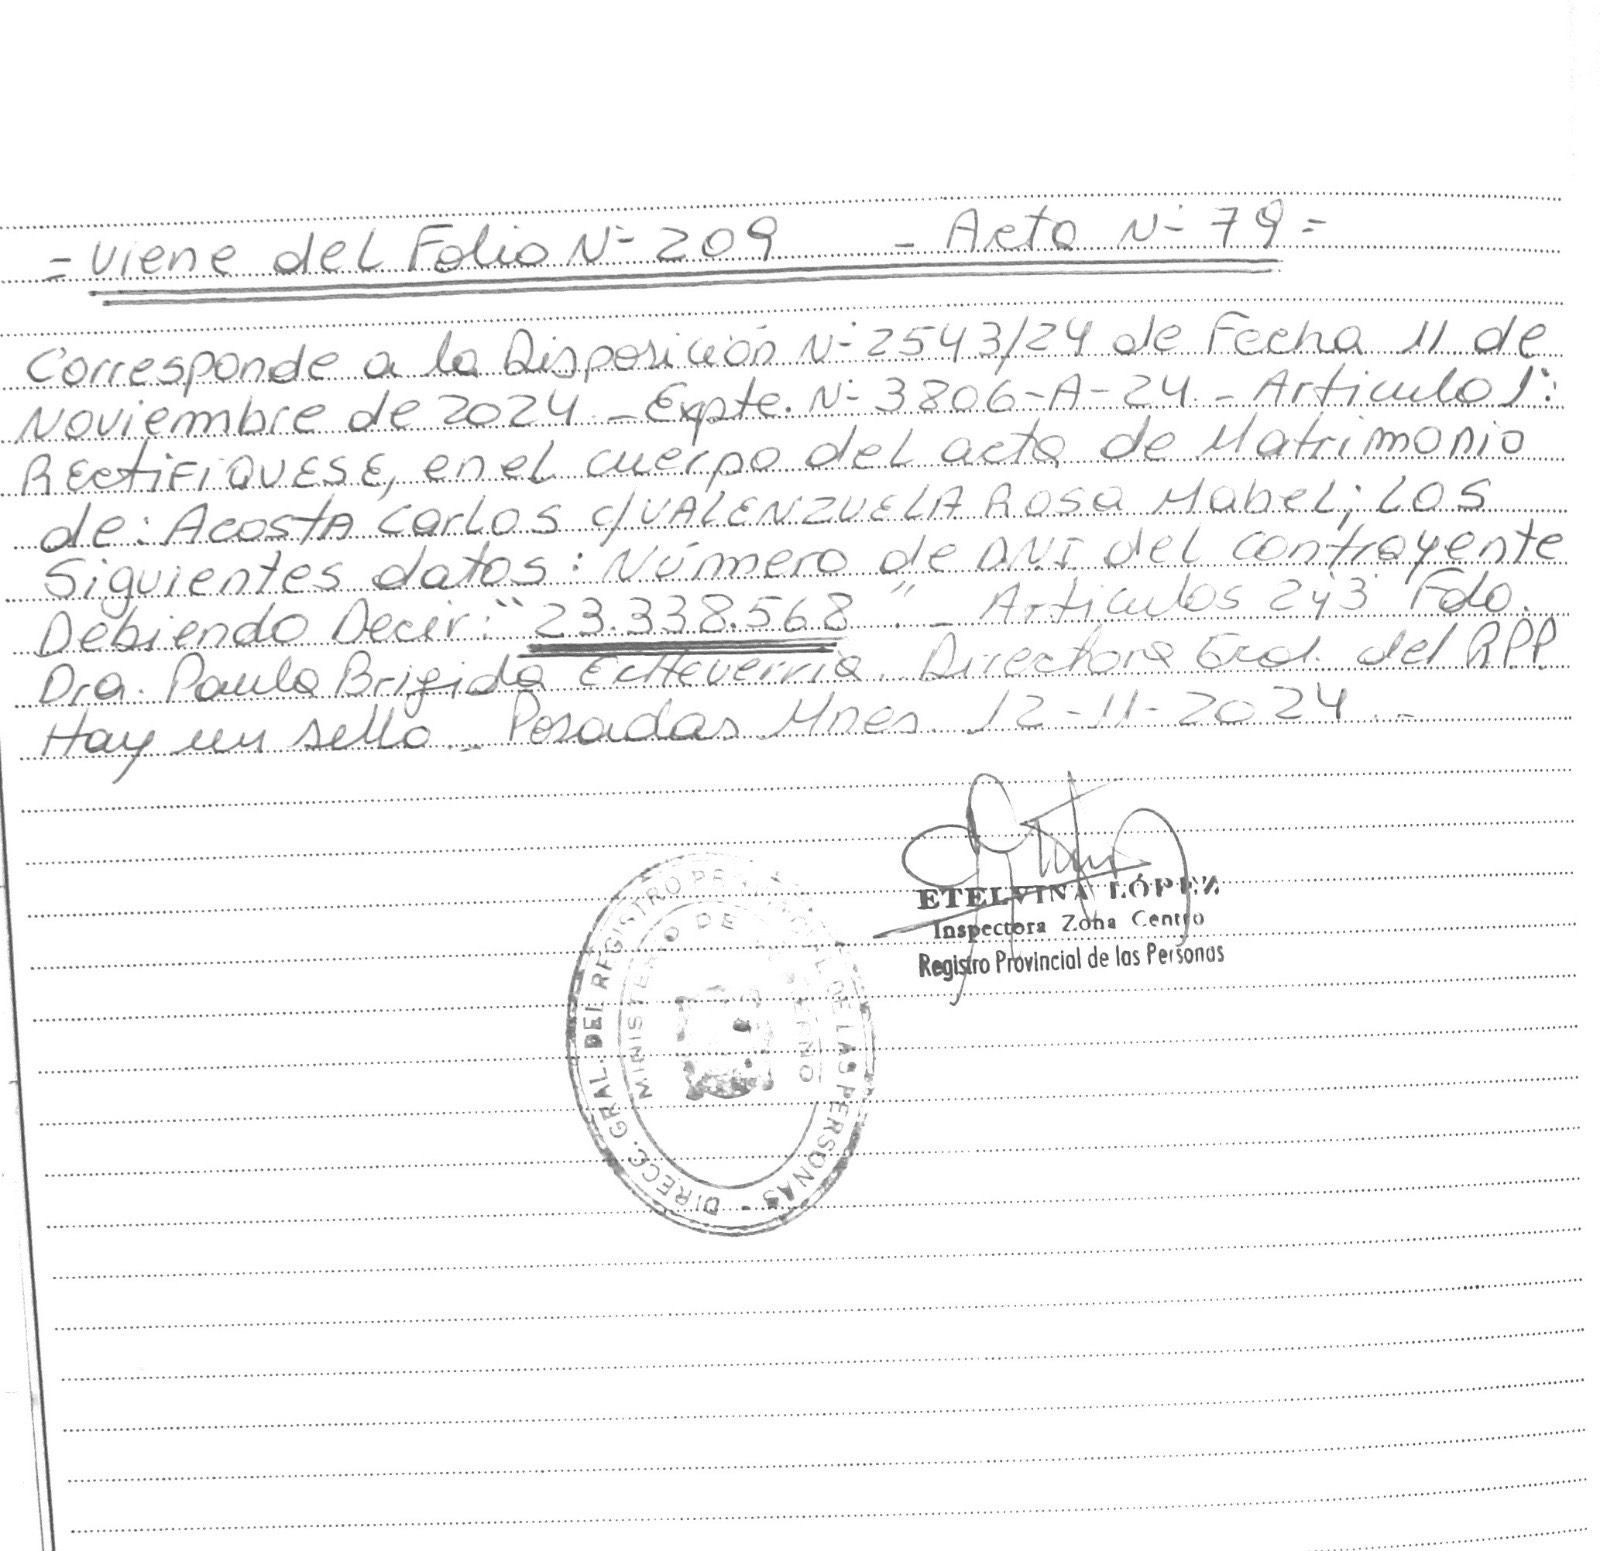 = Viene del Folio N° 209 - Acta N° 79 =
Corresponde a la Disposición N° 2543/24 de Fecha 11 de
Noviembre de 2024 - Expte. N° 3806-A-24 - Articulo 1°:
RECTIFIQUESE, en el cuerpo del acta de Matrimonio
de: Acosta Carlos c/VALENZUELA Rosa Mabel; Los
Siguientes datos: Número de DNI del contrayente
Debiendo Decir: "23.338.568". - Articulos 2y3 Fdo.
Dra. Paula Brigida Echeverria. Directora Gral. del RPP.
Hay un sello - Posadas Mnes. 12-11-2024.-
ETELVINA LÓPEZ
Inspectora Zona Centro
Registro Provincial de las Personas
DIRECC. GRAL. DEL REGISTRO PROVINCIAL DE LAS PERSONAS -
MINISTERIO DE GOBIERNO